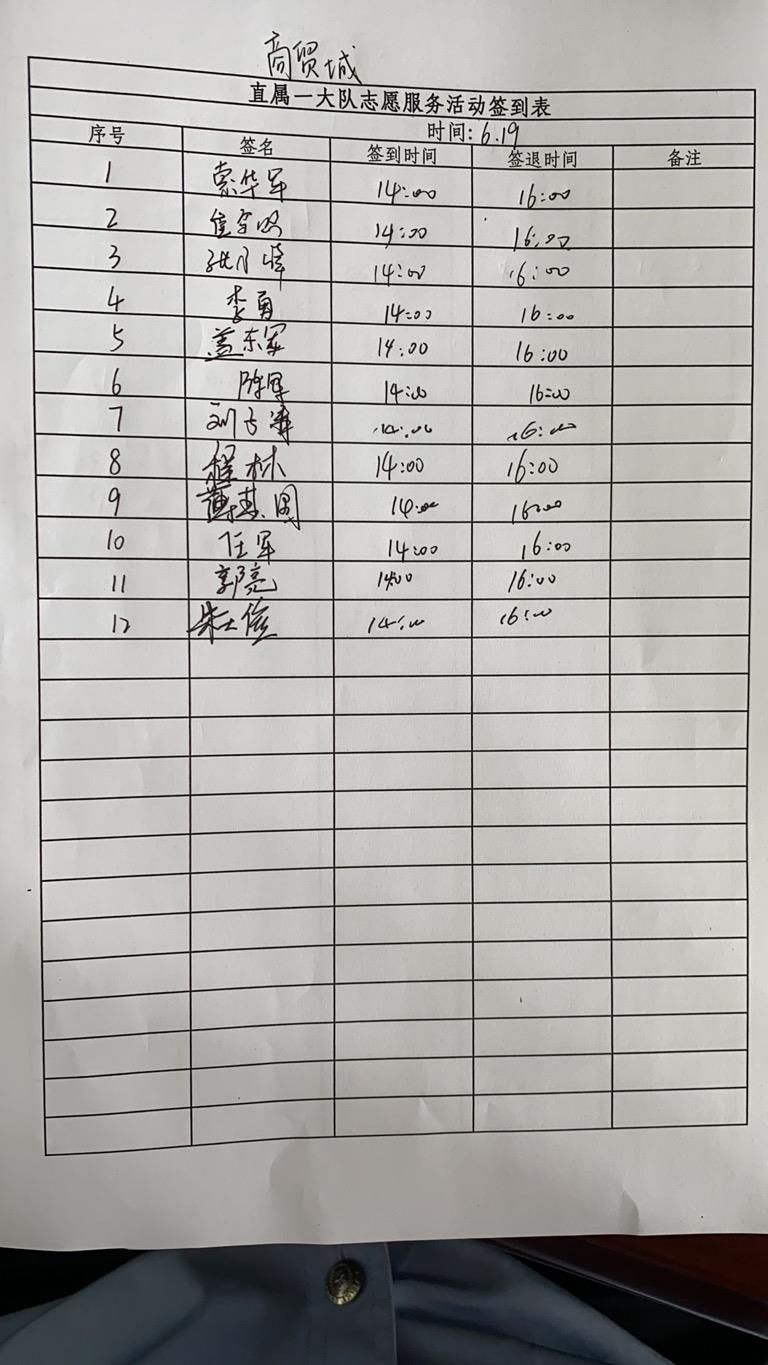 商贸城
直属一大队志愿服务活动签到表
时间: 6.19
序号 签名 签到时间 签退时间 备注
1 索华军 14:00 16:00
2 14:00 16:00
3 14:00 16:00
4 李勇 14:00 16:00
5 盖东军 14:00 16:00
6 陈军 14:00 16:00
7 14:00 16:00
8 程林 14:00 16:00
9 14:00 16:00
10 任军 14:00 16:00
11 郭亮 14:00 16:00
12 14:00 16:00